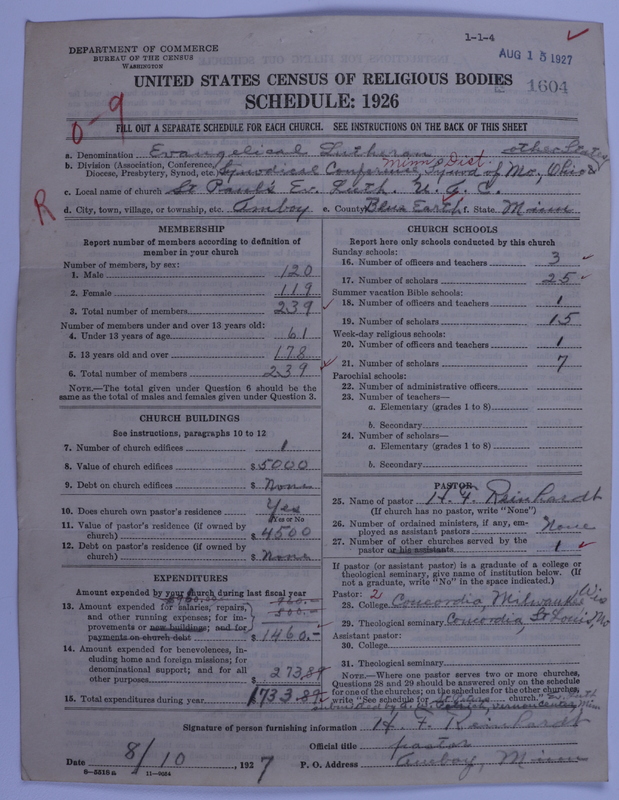 1-1-4
DEPARTMENT OF COMMERCE
BUREAU OF THE CENSUS
WASHINGTON
AUG 15 1927
1604
UNITED STATES CENSUS OF RELIGIOUS BODIES
SCHEDULE: 1926
0-9
FILL OUT A SEPARATE SCHEDULE FOR EACH CHURCH. SEE INSTRUCTIONS ON THE BACK OF THIS SHEET
a. Denomination Evangelical Lutheran
Minn Dist.
b. Division (Association, Conference,
Diocese, Presbytery, Synod, etc.) Synodical Conference, Synod of Mo., Ohio & other States
c. Local name of church St Paul's Ev. Luth. U. A. C.
R
d. City, town, village, or township, etc. Amboy e. County Blue Earth f. State Minn
MEMBERSHIP
Report number of members according to definition of
member in your church
Number of members, by sex:
1. Male 120
2. Female 119
3. Total number of members 239
Number of members under and over 13 years old:
4. Under 13 years of age 61
5. 13 years old and over 178
6. Total number of members 239
NOTE.—The total given under Question 6 should be the
same as the total of males and females given under Question 3.
CHURCH BUILDINGS
See instructions, paragraphs 10 to 12
7. Number of church edifices 1
8. Value of church edifices $5000
9. Debt on church edifices $ None
10. Does church own pastor's residence Yes
(Yes or No
11. Value of pastor's residence (if owned by
church) $ 4500
12. Debt on pastor's residence (if owned by
church) $ None
EXPENDITURES
Amount expended by your church during last fiscal year
960.—
500.—
13. Amount expended for salaries, repairs,
and other running expenses; for im-
provements or new buildings; and for
payments on church debt $ 1460.—
14. Amount expended for benevolences, in-
cluding home and foreign missions; for
denominational support; and for all
other purposes $ 273.89
15. Total expenditures during year $1733.89
CHURCH SCHOOLS
Report here only schools conducted by this church
Sunday schools:
16. Number of officers and teachers 3
17. Number of scholars 25
Summer vacation Bible schools:
18. Number of officers and teachers 1
19. Number of scholars 15
Week-day religious schools:
20. Number of officers and teachers 1
21. Number of scholars 7
Parochial schools:
22. Number of administrative officers
23. Number of teachers—
a. Elementary (grades 1 to 8)
b. Secondary
24. Number of scholars—
a. Elementary (grades 1 to 8)
b. Secondary
PASTOR
25. Name of pastor H. F. Reinhardt
(If church has no pastor, write "None")
26. Number of ordained ministers, if any, em-
ployed as assistant pastors None
27. Number of other churches served by the
pastor or his assistants 1
If pastor (or assistant pastor) is a graduate of a college or
theological seminary, give name of institution below. (If
not a graduate, write "No" in the space indicated.)
Pastor: 2
28. College Concordia, Milwaukee Wis
29. Theological seminary Concordia, St Louis, Mo
Assistant pastor:
30. College
31. Theological seminary
NOTE.—Where one pastor serves two or more churches,
Questions 28 and 29 should be answered only on the schedule
for one of the churches; on the schedules for the other churches,
write "See schedule for church." Ev. Luth
submitted by Vernon Center, Minn
Signature of person furnishing information H. F. Reinhardt
Official title pastor
Date 8/10, 1927 P. O. Address Amboy, Minn
6—5518 a 11—9054